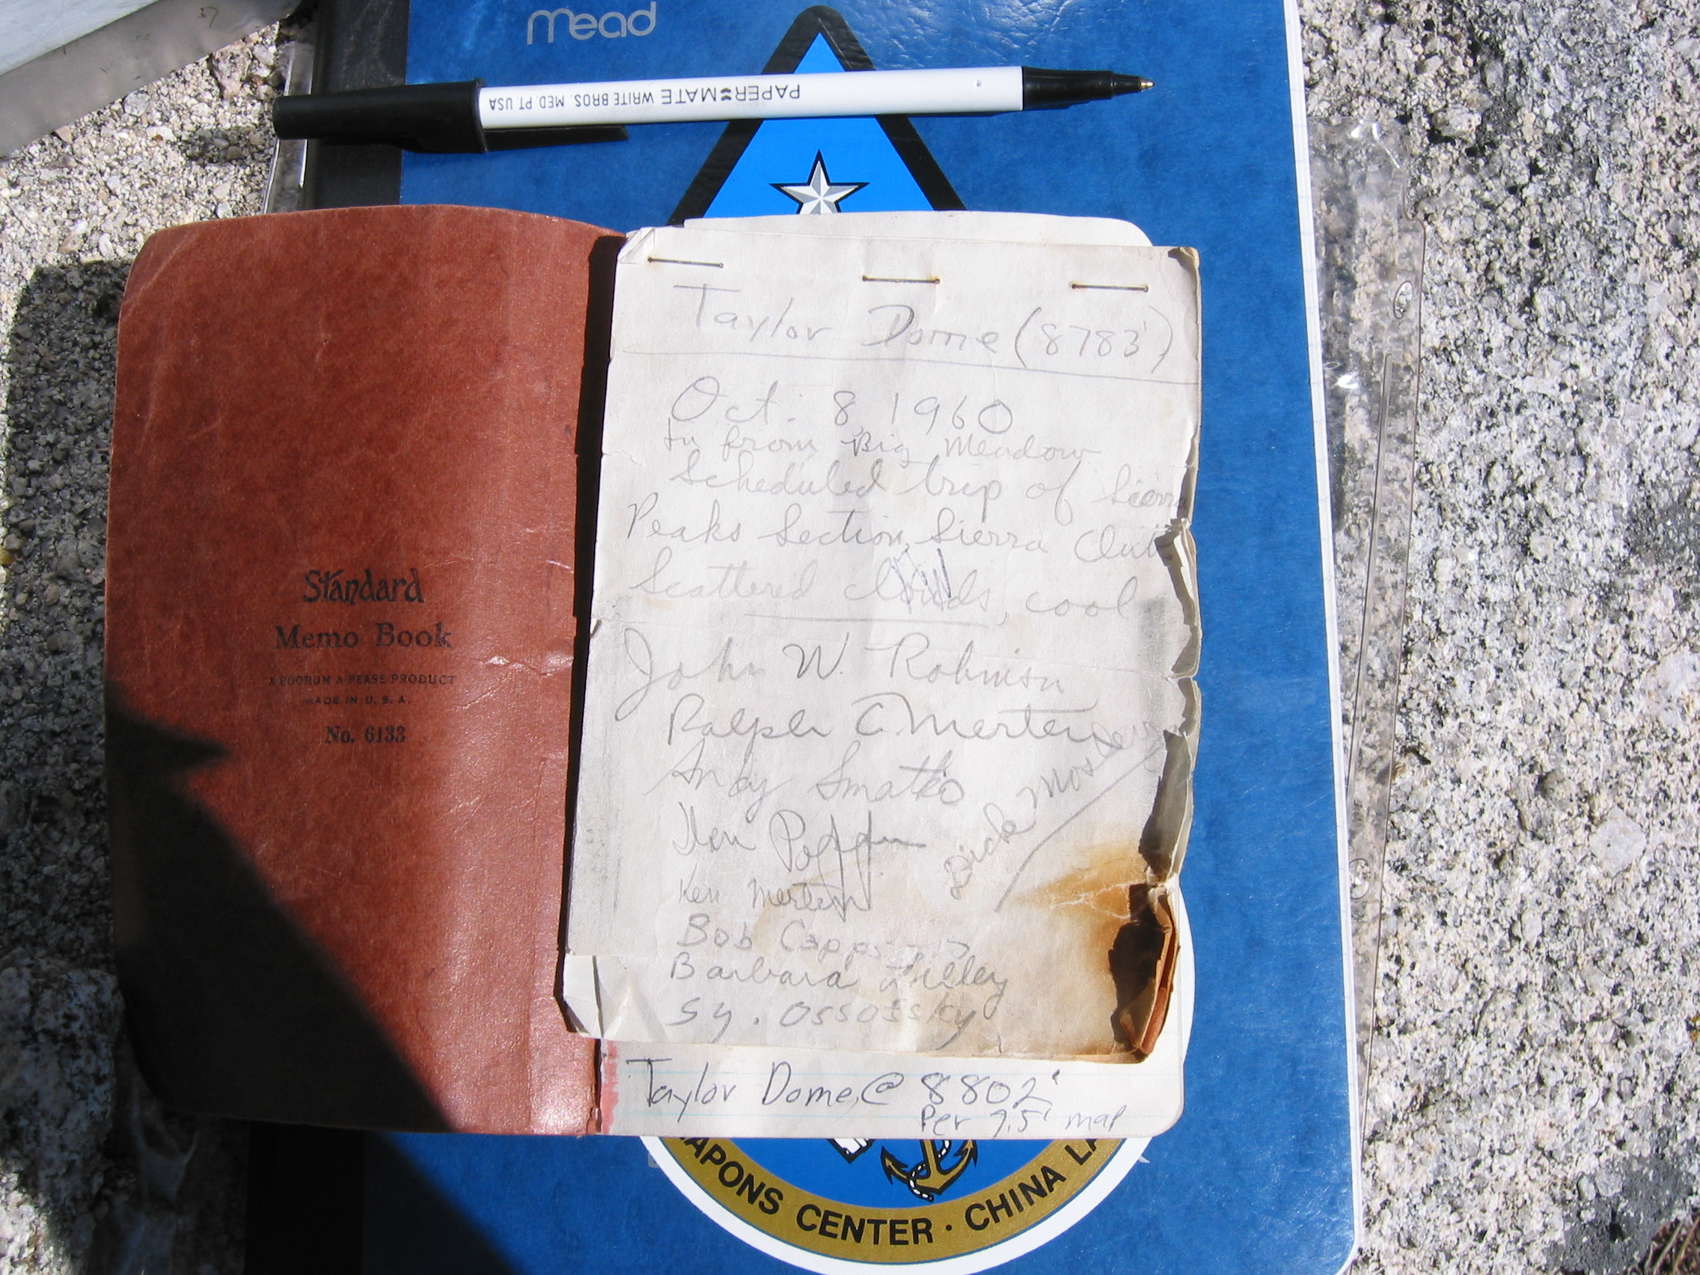 mead
PAPER MATE WRITE BROS. MED PT USA
Standard
Memo Book
PRODUCT
MADE IN U. S. A.
No. 6133
Taylor Dome (8783')
Oct. 8, 1960
in from Big Meadow
Scheduled trip of Sierra
Peaks Section, Sierra Club
Scattered clouds, cool
John W. Robinson
Ralph C. Merten
Andy Smatko
Dick
Ken
Ken Merten
Bob Capps
Barbara Lilley
Sy. Ossofsky
Taylor Dome @ 8802'
Per 7.5' map
APONS CENTER · CHINA LA